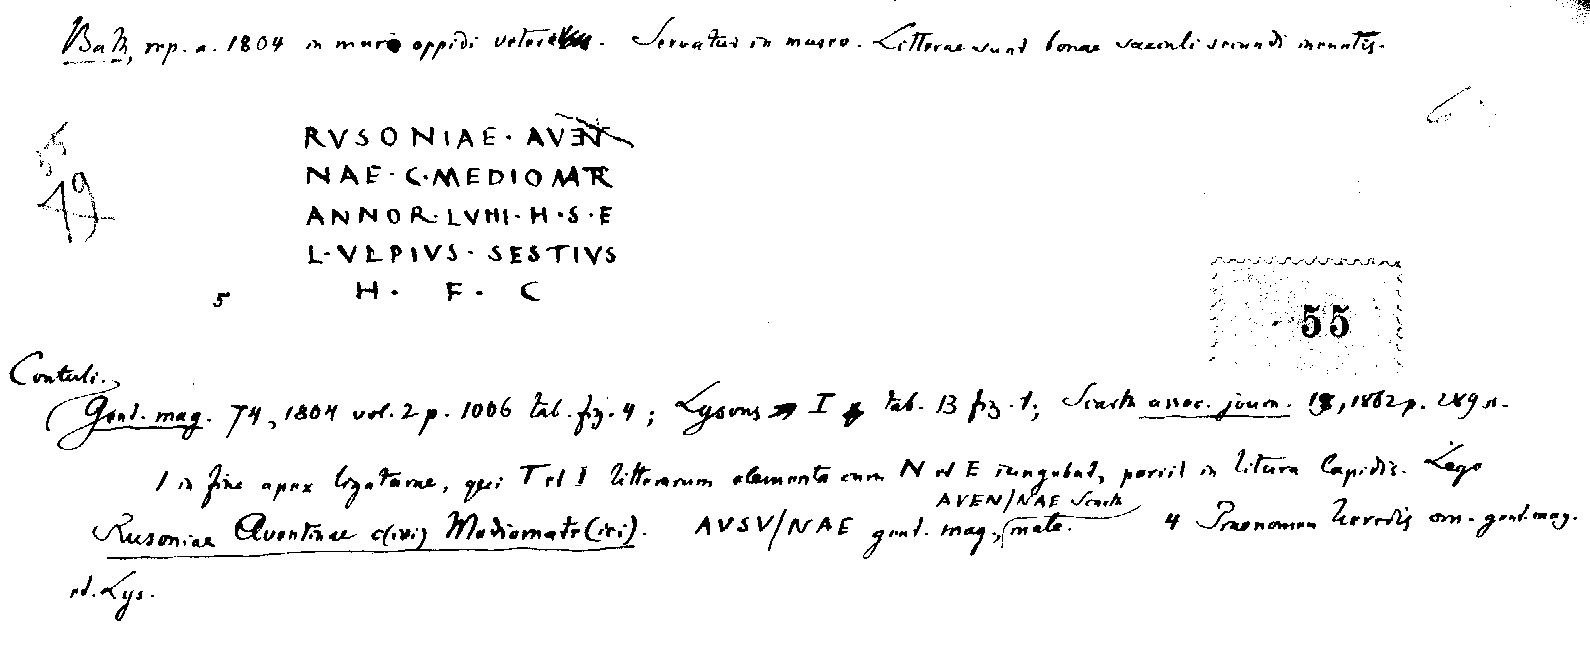 Bath, rep. a. 1804 in muro oppidi vetere. Servatur in museo. Litterae sunt bonae saeculi secundi ineuntis.
6
55
49
RVSONIAE · AVEN
NAE · C · MEDIOMATR
ANNOR · LVIII · H · S · E
L · VLPIVS · SESTIVS
5 H · F · C
55
Contuli.
Gent. mag. 74, 1804 vol. 2 p. 1006 tab. fig. 4; Lysons I tab. 13 fig. 1; Scarth assoc. journ. 18, 1862 p. 289 n.
1 in fine apex ligaturae, qui T et I litterarum elementa cum N et E iungebat, periit in litura lapidis. Lego
AVEN/NAE Scarth
Rusoniae Aventinae c(ivi) Mediomatr(ici). AVSV/NAE gent. mag., male. 4 Praenomen heredis om. gent. mag.
et Lys.